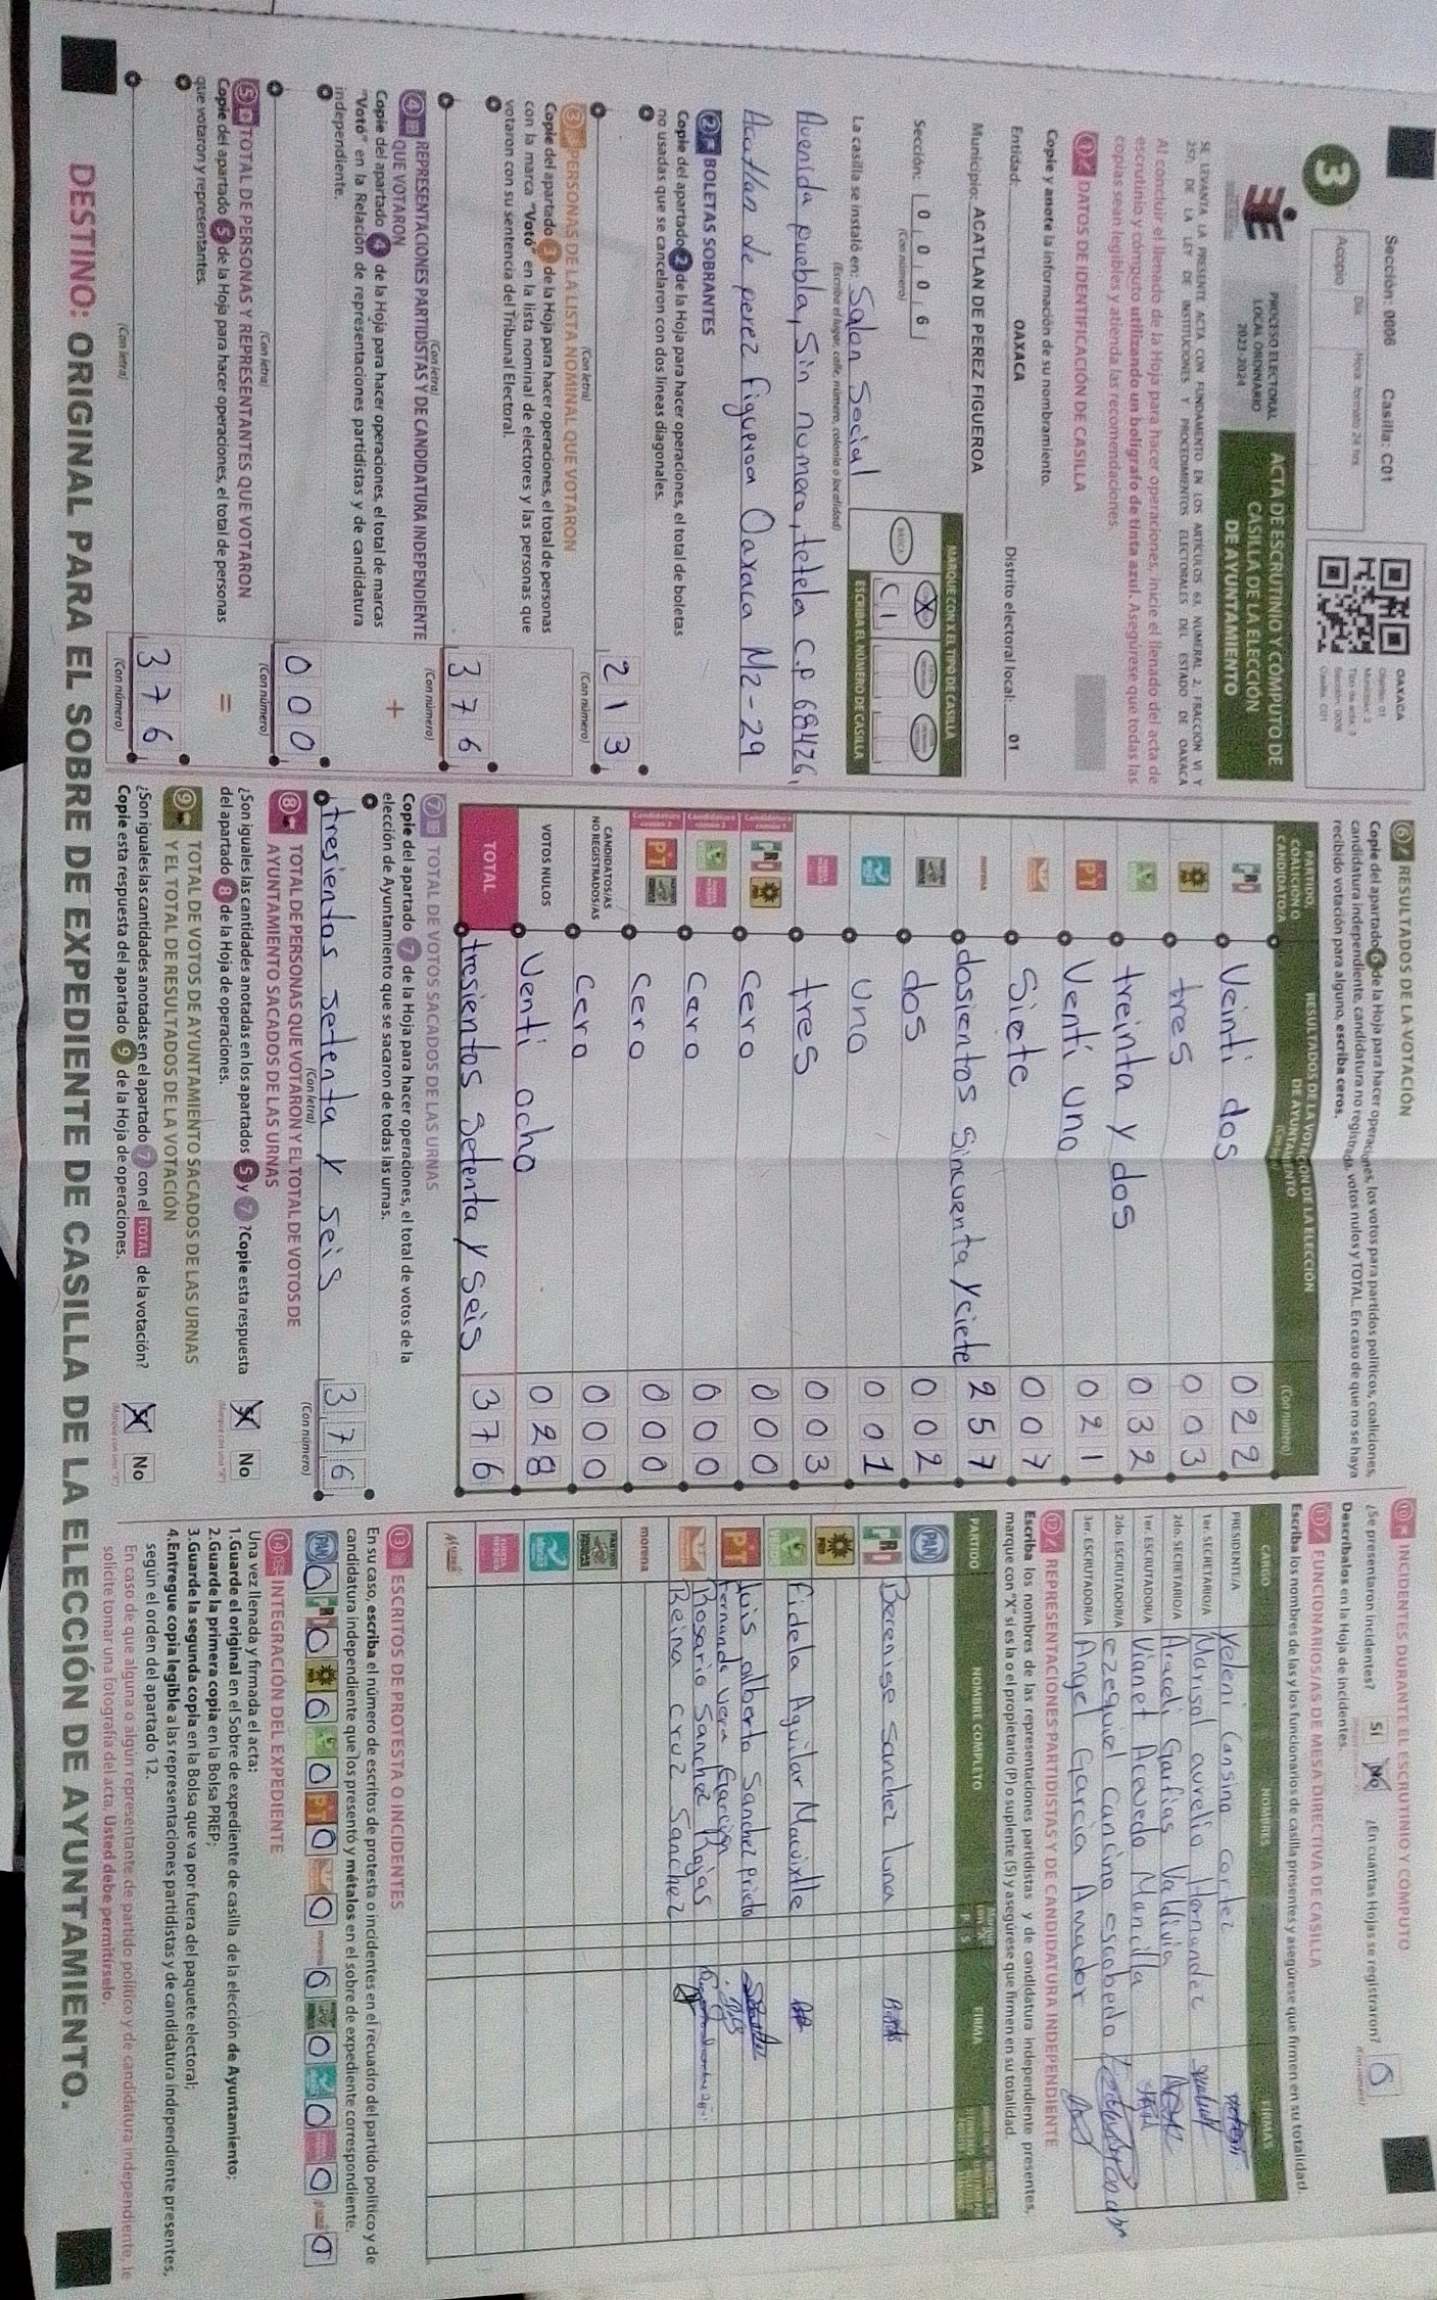 Sección: 0006 Casilla: C01
OAXACA
Distrito: 01
Municipio: 2
Tipo de acta: 3
Sección: 0006
Casilla: C01
3
Acopio
Día
Hora: formato 24 hrs
PROCESO ELECTORAL
LOCAL ORDINARIO
2023-2024
ACTA DE ESCRUTINIO Y CÓMPUTO DE
CASILLA DE LA ELECCIÓN
DE AYUNTAMIENTO
SE LEVANTA LA PRESENTE ACTA CON FUNDAMENTO EN LOS ARTÍCULOS 63, NUMERAL 2, FRACCIÓN VI Y
257, DE LA LEY DE INSTITUCIONES Y PROCEDIMIENTOS ELECTORALES DEL ESTADO DE OAXACA
Al concluir el llenado de la Hoja para hacer operaciones, inicie el llenado del acta de
escrutinio y cómputo utilizando un bolígrafo de tinta azul. Asegúrese que todas las
copias sean legibles y atienda las recomendaciones.
1 DATOS DE IDENTIFICACIÓN DE CASILLA
Copie y anote la información de su nombramiento.
Entidad: OAXACA Distrito electoral local: 01
Municipio: ACATLAN DE PEREZ FIGUEROA
MARQUE CON X EL TIPO DE CASILLA
Sección: 0 0 0 6
(Con número)
BÁSICA
C 1
ESCRIBA EL NÚMERO DE CASILLA
La casilla se instaló en: Salon Social
(Escriba el lugar, calle, número, colonia o localidad)
Avenida puebla, Sin numero, tetela C.P 68426,
Acatlan de perez figueroa Oaxaca Mz-29
2 BOLETAS SOBRANTES
Copie del apartado 2 de la Hoja para hacer operaciones, el total de boletas
no usadas que se cancelaron con dos líneas diagonales.
213
(Con letra) (Con número)
3 PERSONAS DE LA LISTA NOMINAL QUE VOTARON
Copie del apartado 3 de la Hoja para hacer operaciones, el total de personas
con la marca "Votó" en la lista nominal de electores y las personas que
votaron con su sentencia del Tribunal Electoral.
376
(Con letra) (Con número)
4 REPRESENTACIONES PARTIDISTAS Y DE CANDIDATURA INDEPENDIENTE
QUE VOTARON
+
Copie del apartado 4 de la Hoja para hacer operaciones, el total de marcas
"Votó" en la Relación de representaciones partidistas y de candidatura
independiente.
000
(Con letra) (Con número)
5 TOTAL DE PERSONAS Y REPRESENTANTES QUE VOTARON
=
Copie del apartado 5 de la Hoja para hacer operaciones, el total de personas
que votaron y representantes.
376
(Con letra) (Con número)
6 RESULTADOS DE LA VOTACIÓN
Copie del apartado 6 de la Hoja para hacer operaciones, los votos para partidos políticos, coaliciones,
candidatura independiente, candidatura no registrada, votos nulos y TOTAL. En caso de que no se haya
recibido votación para alguno, escriba ceros.
PARTIDO,
COALICIÓN O
CANDIDATO/A
RESULTADOS DE LA VOTACIÓN DE LA ELECCIÓN
DE AYUNTAMIENTO
(Con número)
PRI Veinti dos 022
tres 003
treinta y dos 032
PT Venti uno 021
Siete 007
morena dosientos sincuenta y ciete 257
dos 002
uno 001
tres 003
PRI cero 000
cero 000
PT cero 000
CANDIDATOS/AS
NO REGISTRADOS/AS cero 000
VOTOS NULOS Venti ocho 028
TOTAL tresientos setenta y seis 376
7 TOTAL DE VOTOS SACADOS DE LAS URNAS
Copie del apartado 7 de la Hoja para hacer operaciones, el total de votos de la
elección de Ayuntamiento que se sacaron de todas las urnas.
tresientos setenta y seis 376
(Con letra) (Con número)
8 TOTAL DE PERSONAS QUE VOTARON Y EL TOTAL DE VOTOS DE
AYUNTAMIENTO SACADOS DE LAS URNAS
¿Son iguales las cantidades anotadas en los apartados 5 y 7 ? Copie esta respuesta
del apartado 8 de la Hoja de operaciones.
No
9 TOTAL DE VOTOS DE AYUNTAMIENTO SACADOS DE LAS URNAS
Y EL TOTAL DE RESULTADOS DE LA VOTACIÓN
¿Son iguales las cantidades anotadas en el apartado 7 con el TOTAL de la votación?
Copie esta respuesta del apartado 9 de la Hoja de operaciones.
No
10 INCIDENTES DURANTE EL ESCRUTINIO Y CÓMPUTO
¿Se presentaron incidentes? Sí No ¿En cuántas Hojas se registraron? 0
Descríbalos en la Hoja de incidentes.
11 FUNCIONARIOS/AS DE MESA DIRECTIVA DE CASILLA
Escriba los nombres de las y los funcionarios de casilla presentes y asegúrese que firmen en su totalidad.
CARGO NOMBRES FIRMAS
PRESIDENTE/A Yeleni Cansino cortez
1er. SECRETARIO/A Marisol aurelio Hernandez
2do. SECRETARIO/A Araceli Garfias Valdivia
1er. ESCRUTADOR/A Vianet Acevedo Mancilla
2do. ESCRUTADOR/A ezequiel Cancino escobedo
3er. ESCRUTADOR/A Angel Garcia Amador
12 REPRESENTACIONES PARTIDISTAS Y DE CANDIDATURA INDEPENDIENTE
Escriba los nombres de las representaciones partidistas y de candidatura independiente presentes,
marque con "X" si es la o el propietario (P) o suplente (S) y asegúrese que firmen en su totalidad.
PARTIDO NOMBRE COMPLETO P S FIRMA
PAN
PRI Berenise sanchez luna
PRD
VERDE Fidela Aguilar
PT luis alberto Sanchez prieto
fernando vera Garcia
Rosario Sanchez Rojas
Reina cruz Sanchez
morena
13 ESCRITOS DE PROTESTA O INCIDENTES
En su caso, escriba el número de escritos de protesta o incidentes en el recuadro del partido político y de
candidatura independiente que los presentó y métalos en el sobre de expediente correspondiente.
PAN 0 PRI 0 0 0 PT 0 0 morena 0 0 0 0 0
14 INTEGRACIÓN DEL EXPEDIENTE
Una vez llenada y firmada el acta:
1.Guarde el original en el Sobre de expediente de casilla de la elección de Ayuntamiento;
2.Guarde la primera copia en la Bolsa PREP;
3.Guarde la segunda copia en la Bolsa que va por fuera del paquete electoral;
4.Entregue copia legible a las representaciones partidistas y de candidatura independiente presentes,
según el orden del apartado 12.
En caso de que alguna o algún representante de partido político y de candidatura independiente, le
solicite tomar una fotografía del acta. Usted debe permitírselo.
DESTINO: ORIGINAL PARA EL SOBRE DE EXPEDIENTE DE CASILLA DE LA ELECCIÓN DE AYUNTAMIENTO.